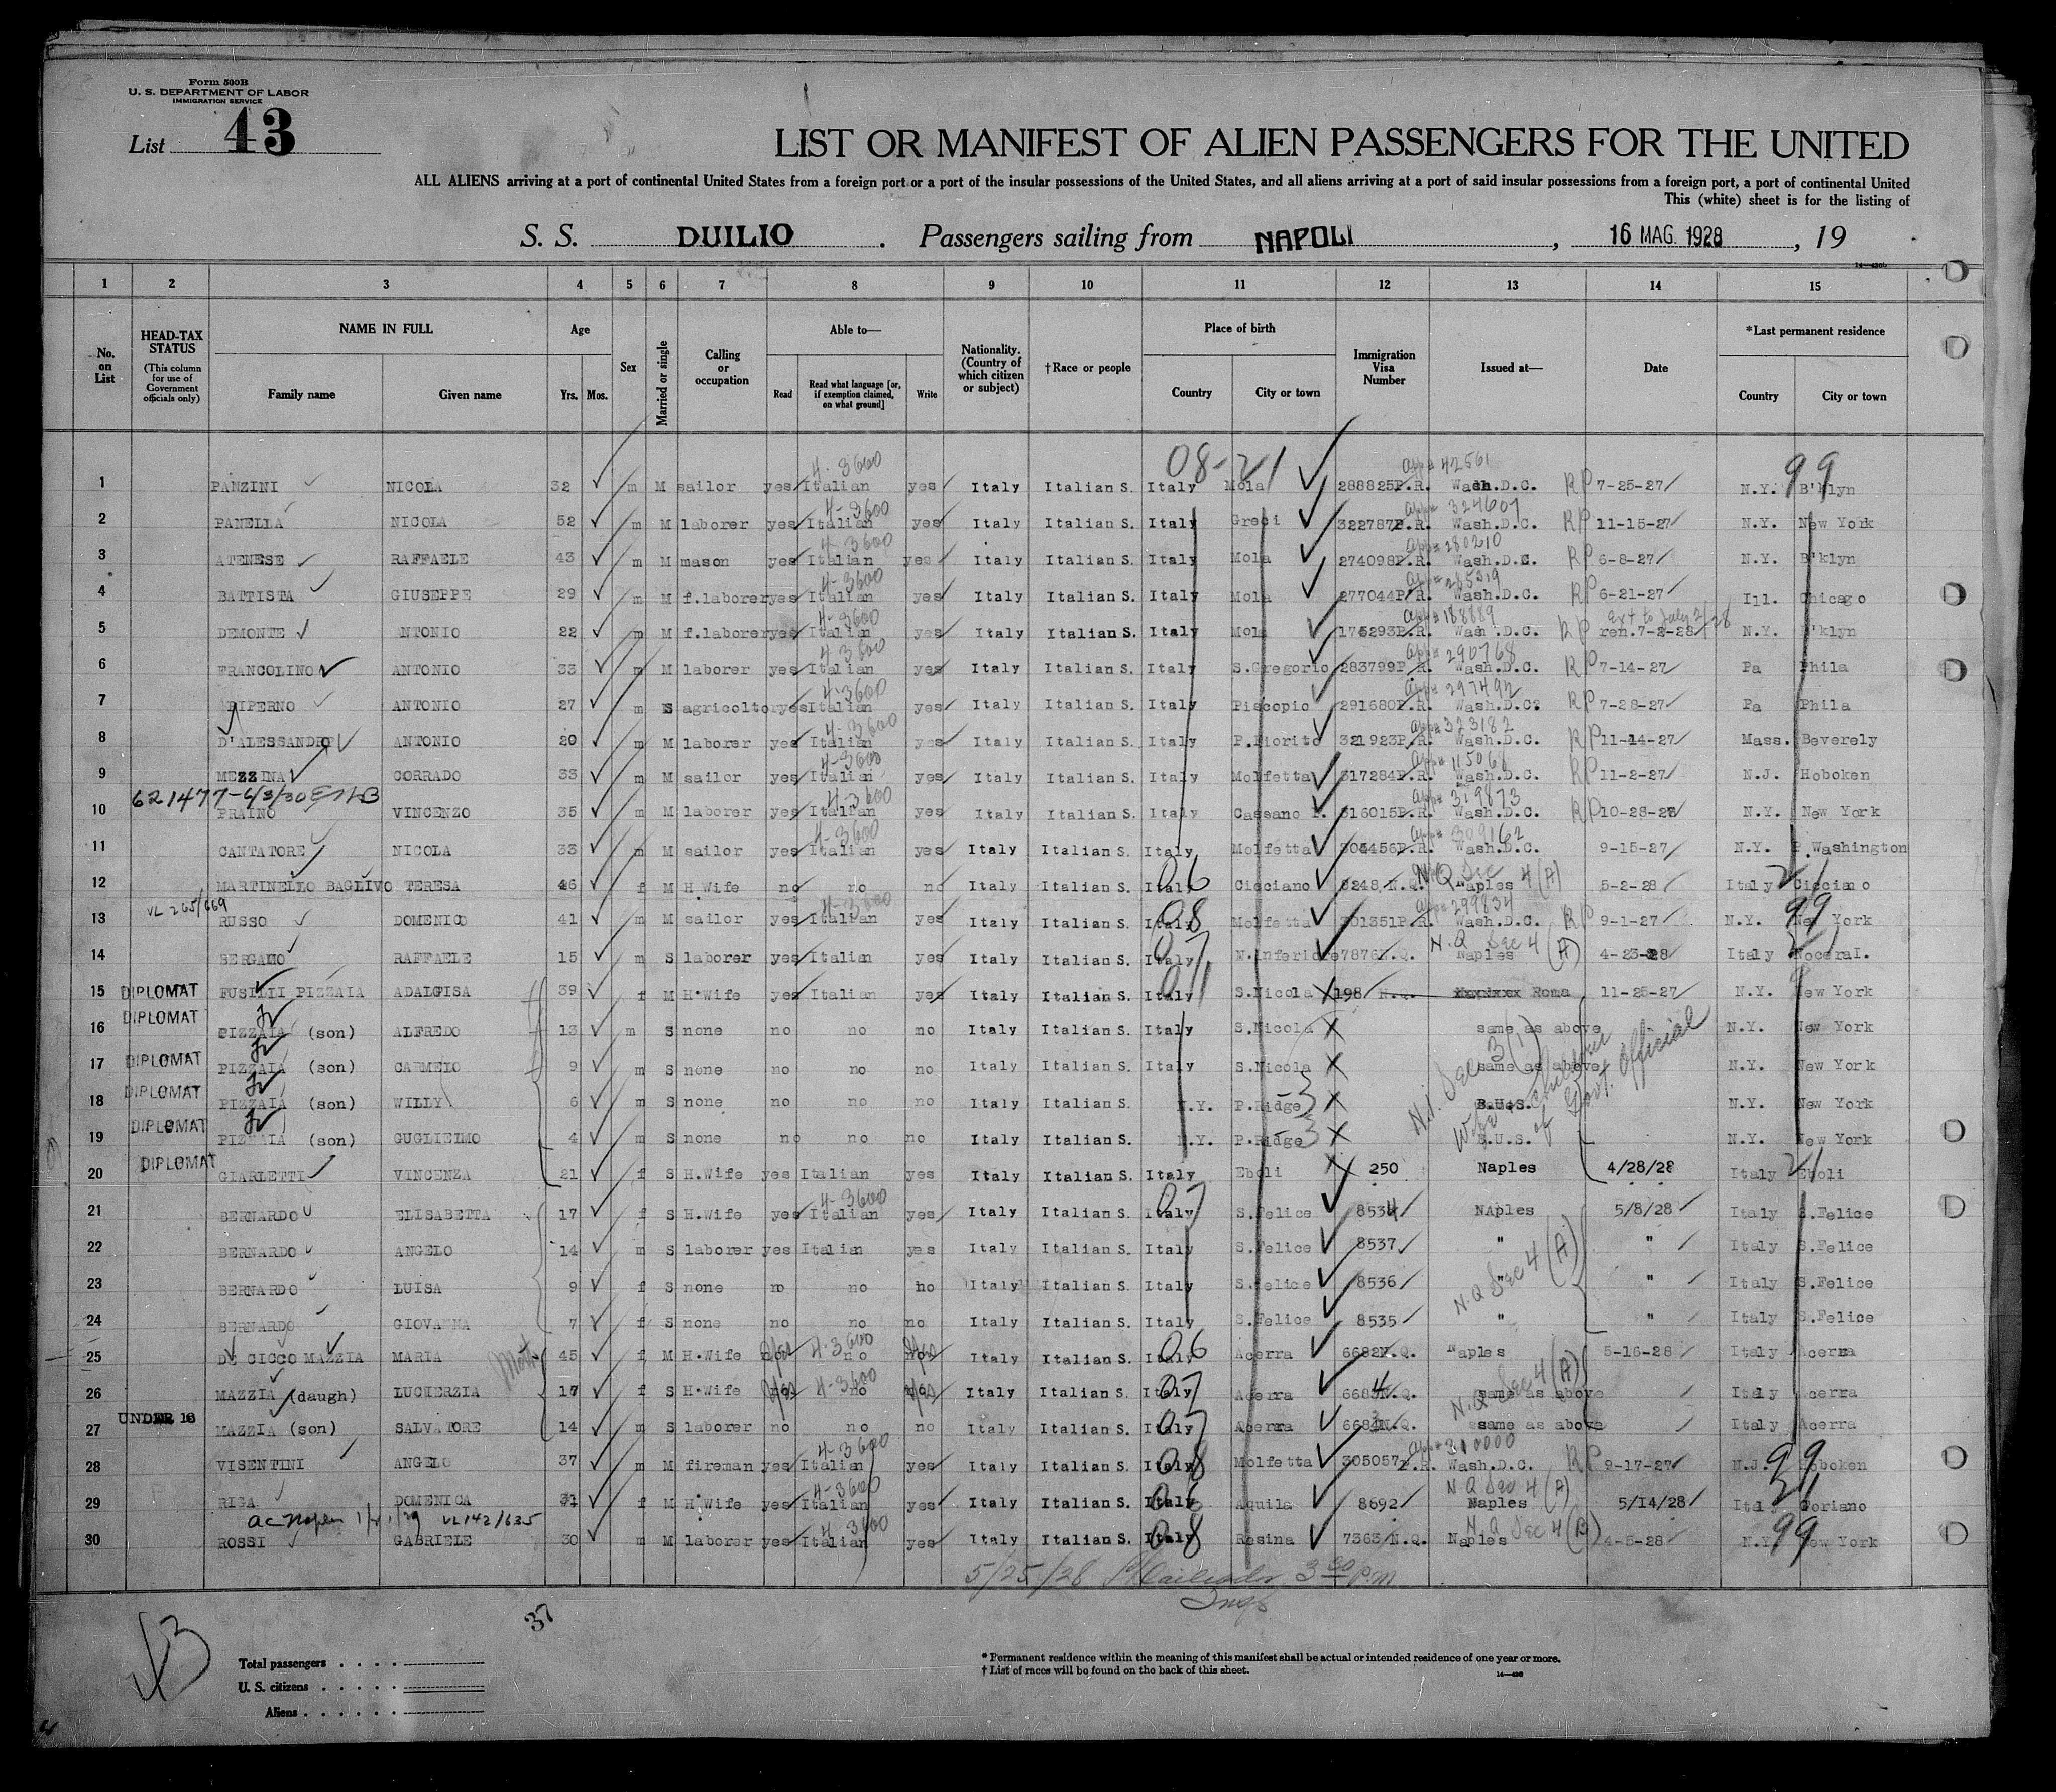 Form 500B
U. S. DEPARTMENT OF LABOR
IMMIGRATION SERVICE
List 43
LIST OR MANIFEST OF ALIEN PASSENGERS FOR THE UNITED
ALL ALIENS arriving at a port of continental United States from a foreign port or a port of the insular possessions of the United States, and all aliens arriving at a port of said insular possessions from a foreign port, a port of continental United
This (white) sheet is for the listing of
S. S. DUILIO . Passengers sailing from NAPOLI , 16 MAG. 1928 , 19
1 2 3 4 5 6 7 8 9 10 11 12 13 14 15
No. on List
HEAD-TAX STATUS (This column for use of Government officials only)
NAME IN FULL Family name Given name
Age Yrs. Mos.
Sex
Married or single
Calling or occupation
Able to— Read Read what language [or, if exemption claimed, on what ground] Write
Nationality. (Country of which citizen or subject)
†Race or people
Place of birth Country City or town
Immigration Visa Number
Issued at—
Date
*Last permanent residence Country City or town
4-3600 08-21 42561 99
1 PANZINI NICOLA 32 m M sailor yes Italian yes Italy Italian S. Italy Mola 288825P.R. Wash.D.C. RP 7-25-27 N.Y. B'klyn
4-3600 324607
2 PANELLA NICOLA 52 m M laborer yes Italian yes Italy Italian S. Italy Greci 322787P.R. Wash.D.C. RP 11-15-27 N.Y. New York
4-3600 280210
3 ATENESE RAFFAELE 43 m M mason yes Italian yes Italy Italian S. Italy Mola 274098P.R. Wash.D.C. RP 6-8-27 N.Y. B'klyn
4-3600 285319
4 BATTISTA GIUSEPPE 29 m M f.laborer yes Italian yes Italy Italian S. Italy Mola 277044P.R. Wash.D.C. RP 6-21-27 Ill. Chicago
4-3600 188889 Ext to July 2/28
5 DEMONTE ANTONIO 22 m M f.laborer yes Italian yes Italy Italian S. Italy Mola 175293P.R. Wash.D.C. RP ren.7-2-28 N.Y. B'klyn
4-3600 290768
6 FRANCOLINO ANTONIO 33 m M laborer yes Italian yes Italy Italian S. Italy S.Gregorio 283799P.R. Wash.D.C. RP 7-14-27 Pa Phila
4-3600 297492
7 PIPERNO ANTONIO 27 m S agricoltor yes Italian yes Italy Italian S. Italy Piscopio 291680P.R. Wash.D.C. RP 7-28-27 Pa Phila
4-3600 323182
8 D'ALESSANDRO ANTONIO 20 m M laborer yes Italian yes Italy Italian S. Italy P.Fiorito 321923P.R. Wash.D.C. RP 11-14-27 Mass. Beverely
4-3600 115068
9 MEZZINA CORRADO 33 m M sailor yes Italian yes Italy Italian S. Italy Molfetta 317284P.R. Wash.D.C. RP 11-2-27 N.J. Hoboken
621477-6/3/30 4-3600 319873
10 PRAINO VINCENZO 35 m M laborer yes Italian yes Italy Italian S. Italy Cassano 316015P.R. Wash.D.C. RP 10-28-27 N.Y. New York
4-3600 309162
11 CANTATORE NICOLA 33 m M sailor yes Italian yes Italy Italian S. Italy Molfetta 304456P.R. Wash.D.C. 9-15-27 N.Y. P.Washington
06 N.Q. Sec 4 (A) 21
12 MARTINELLO BAGLIVO TERESA 46 f M H.Wife no no no Italy Italian S. Italy Cicciano 8248 N.Q. Naples 5-2-28 Italy Cicciano
VL 265/669 4-3600 08 299834 99
13 RUSSO DOMENICO 41 m M sailor yes Italian yes Italy Italian S. Italy Molfetta 301351P.R. Wash.D.C. RP 9-1-27 N.Y. New York
07 N.Q Sec 4 (A) 21
14 BERGAMO RAFFAELE 15 m S laborer yes Italian yes Italy Italian S. Italy N.Inferiore 7878N.Q. Naples 4-23-28 Italy NoceraI.
15 DIPLOMAT FUSILLI PIZZAIA ADALGISA 39 f M H.Wife yes Italian yes Italy Italian S. Italy S.Nicola 198 N.Q. Roma 11-25-27 N.Y. New York
16 DIPLOMAT PIZZAIA (son) ALFREDO 13 m S none no no no Italy Italian S. Italy S.Nicola same as above N.Y. New York
17 DIPLOMAT PIZZAIA (son) CARMELO 9 m S none no no no Italy Italian S. Italy S.Nicola same as above N.Y. New York
18 DIPLOMAT PIZZAIA (son) WILLY 6 m S none no no no Italy Italian S. N.Y. P.Ridge B.U.S. N.Y. New York
19 DIPLOMAT PIZZAIA (son) GUGLIELMO 4 m S none no no no Italy Italian S. N.Y. P.Ridge B.U.S. N.Y. New York
N.I. Sec 3 (1) Wife children of Govt. Official
20 DIPLOMAT GIARLETTI VINCENZA 21 f S H.Wife yes Italian yes Italy Italian S. Italy Eboli 250 Naples 4/28/28 Italy Eboli
4-3600 07 21
21 BERNARDO ELISABETTA 17 f S H.Wife yes Italian yes Italy Italian S. Italy S.Felice 8534 NAples 5/8/28 Italy S.Felice
22 BERNARDO ANGELO 14 m S laborer yes Italian yes Italy Italian S. Italy S.Felice 8537 " " Italy S.Felice
23 BERNARDO LUISA 9 f S none no no no Italy Italian S. Italy S.Felice 8536 " " Italy S.Felice
N.Q Sec 4 (A)
24 BERNARDO GIOVANNA 7 f S none no no no Italy Italian S. Italy S.Felice 8535 " " Italy S.Felice
4-3600 06
25 DE CICCO MAZZIA MARIA 45 f M H.Wife no no no Italy Italian S. Italy Acerra 6682N.Q. Naples 5-16-28 Italy Acerra
4-3600 07 N.Q Sec 4 (A)
26 MAZZIA (daugh) LUCIERZIA 17 f S H.Wife no no no Italy Italian S. Italy Acerra 6684N.Q. same as above Italy Acerra
UNDER 16 07
27 MAZZIA (son) SALVATORE 14 m S laborer no no no Italy Italian S. Italy Acerra N.Q. same as above Italy Acerra
4-3600 08 310000 99
28 VISENTINI ANGELO 37 m M fireman yes Italian yes Italy Italian S. Italy Molfetta 305057P.R. Wash.D.C. RP 9-17-27 N.J. Hoboken
4-3600 06 N.Q Sec 4 (A) 21
29 RIGA DOMENICA 31 f M H.Wife yes Italian yes Italy Italian S. Italy Aquila 8692 Naples 5/14/28 Italy Soriano
VL 142/635 4-3600 08 N.Q Sec 4 (B) 99
30 ROSSI GABRIELE 30 m M laborer yes Italian yes Italy Italian S. Italy Resina 7363 N.Q. Naples 4-5-28 N.Y. New York
5/25/28 3 30 P.M
37
43
Total passengers
U. S. citizens
Aliens
* Permanent residence within the meaning of this manifest shall be actual or intended residence of one year or more.
† List of races will be found on the back of this sheet.